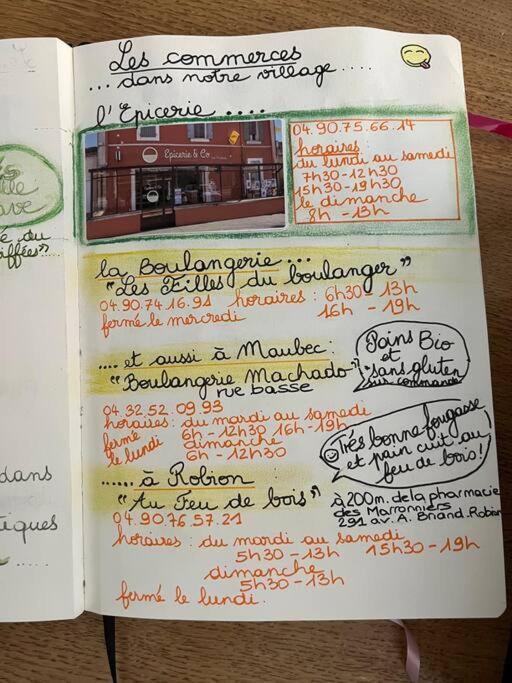 Les commerces
... dans notre village ....
l'Epicerie ....
Epicerie & Co
04.90.75.66.14
horaires :
du lundi au samedi
7h30-12h30
15h30-19h30
le dimanche
8h - 13h
la Boulangerie ...
"Les Filles du boulanger"
04.90.74.16.91 horaires : 6h30 - 13h
fermé le mercredi 16h - 19h
.... et aussi à Maubec :
"Boulangerie Machado"
rue basse
Pains Bio
et
sans gluten
sur commande
04.32.52.09.93
horaires : du mardi au samedi
6h - 12h30 16h-19h
fermé
le lundi
dimanche
6h - 12h30
Très bonne fougasse
et pain cuit au
feu de bois !
...... à Robion
"Au Feu de bois"
à 200m. de la pharmacie
des Marronniers
291 av. A. Briand. Robion
04.90.76.57.21
horaires : du mardi au samedi
5h30 - 13h 15h30-19h
dimanche
5h30 - 13h
fermé le lundi.
ave
é du
iffées"
dans
tiques